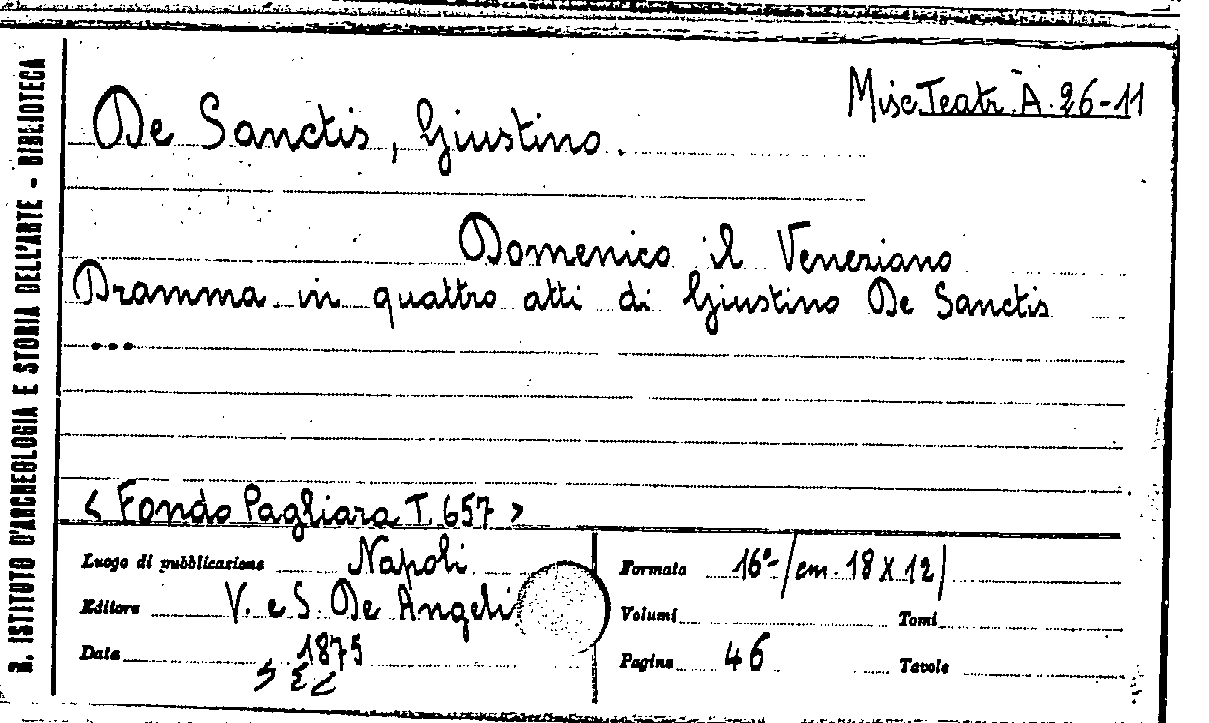 R. ISTITUTO D'ARCHEOLOGIA E STORIA DELL'ARTE - BIBLIOTECA
Misc Teatr. A. 26-11
De Sanctis, Giustino.
Domenico il Veneziano
Dramma in quattro atti di Giustino De Sanctis
...
< Fondo Pagliara T. 657 >
Luogo di pubblicazione Napoli
Editore V. e S. De Angeli
Data 1875
Formato 16°-/cm. 18 X 12/
Volumi Tomi
Pagine 46 Tavole